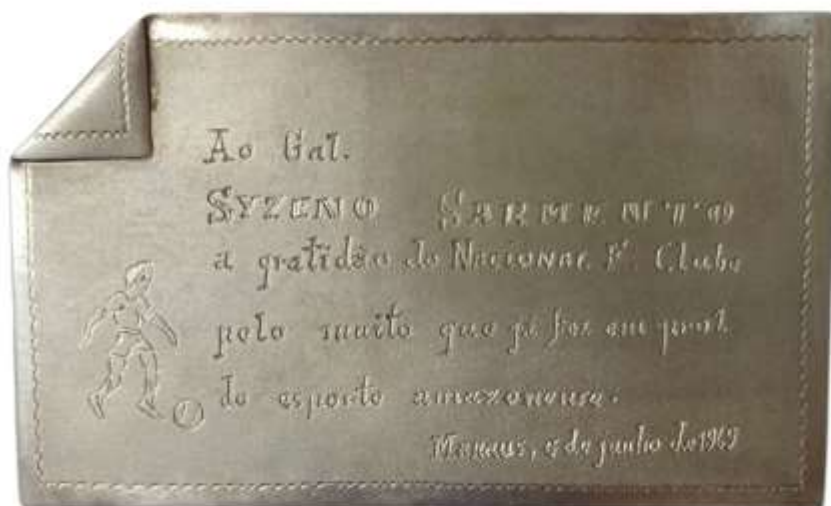 Ao Gal.
SYZENO SARMENTO
a gratidão do NACIONAL F. Clube
pelo muito que já fez em prol
do esporte amazonense.
Manaus, de junho de 1969